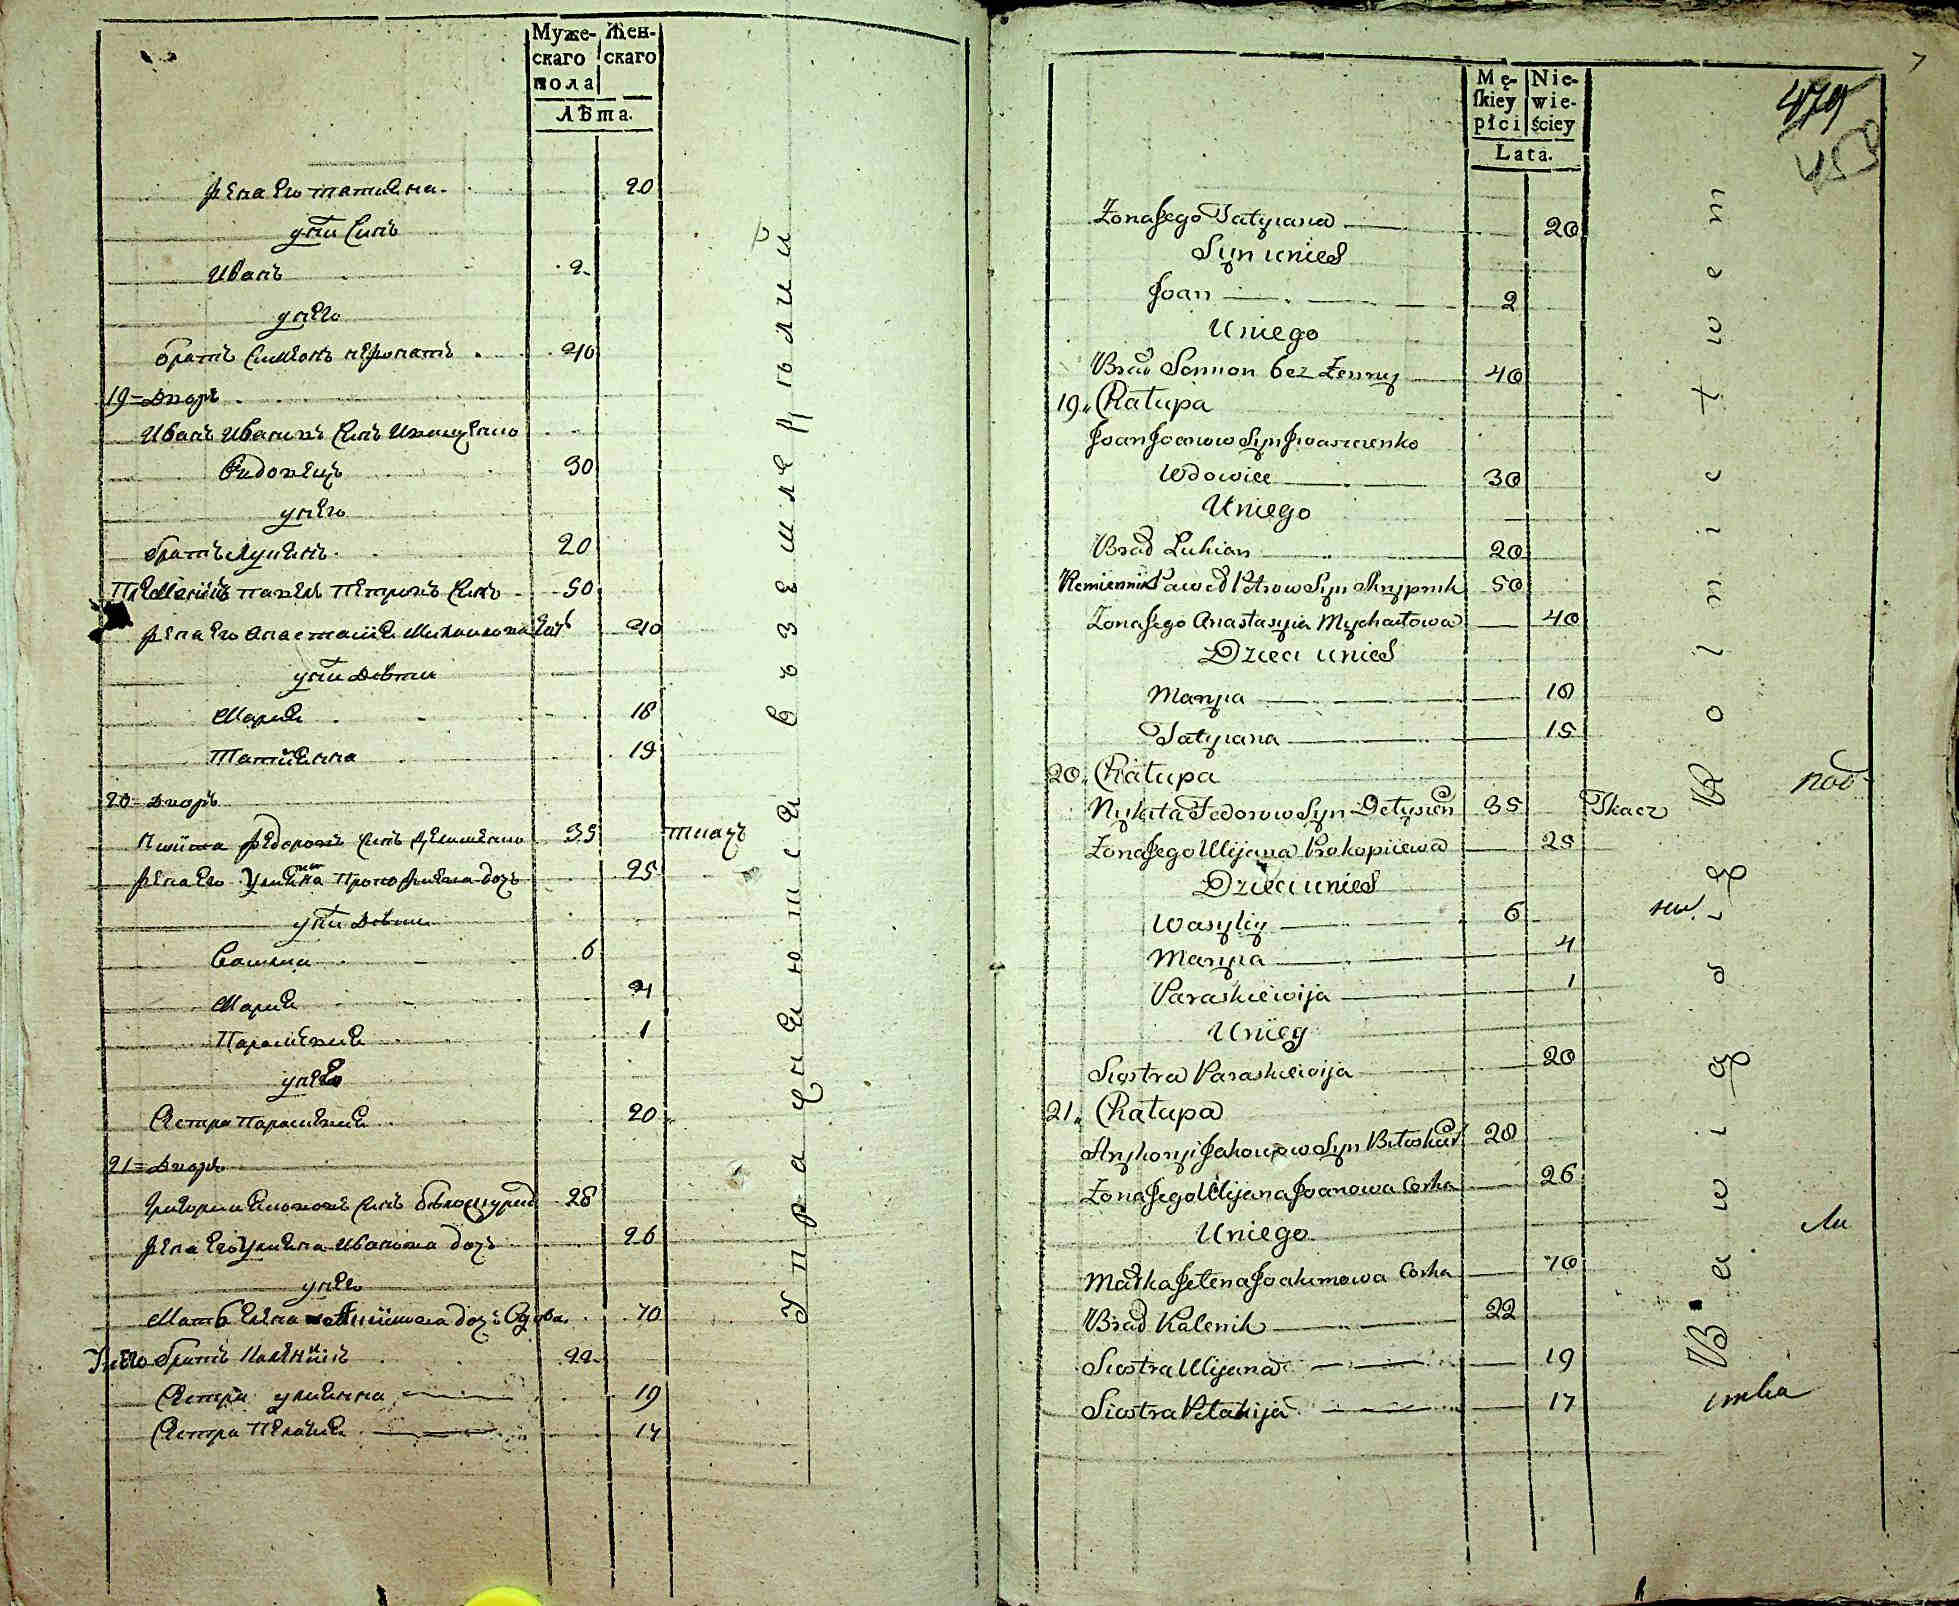 Муже-
скаго
пола
Жен-
скаго
Лѣта.
жена его татиана 20
унихъ синъ
Иванъ 2
унего
братъ Симеонъ нежонатъ 40
19 Дворъ
Иванъ Ивановъ синъ Иващенко
вдовецъ 30
унего
братъ Лукианъ 20
Племеникъ павелъ Петровъ синъ 50
жена его анастасия Михаилова дочь 40
унихъ дѣти
Мария 18
Татиана 15
20 Дворъ
Никита Федоровъ синъ 35 ткачъ
жена его Улиана Прокофиева дочь 25
унихъ дѣти
Василий 6
Мария 4
Параскевия 1
унего
Сестра Параскевия 20
21 Дворъ
Григорий Якововъ синъ 28
жена его Улиана Иванова дочь 26
унего
Мать Елена дочь вдова 70
Унего братъ Каленикъ 22
Сестра улианна 19
Сестра Пелагия 17
Упражняются въ земледѣлии
Mę-
skiey
płci
Nie-
wie-
ściey
Lata.
7
479
Żona Jego Tatyiana 20
Syn unich
Joan 2
Uniego
Brad Semion bez Żenny 40
19. Chałupa
Joan Joanow Syn Jwaszczenko
Wdowiec 30
Uniego
Brad Lukian 20
Plemiennik Paweł Petrow Syn Skrypnik 50
Żona Jego Anastasyia Mychaiłowa 40
Dzieci unich
Maryia 18
Tatyiana 15
20. Chałupa
Nykita Fedorow Syn 35 Tkacz
Żona Jego Ulijana Prokopijewa 25
Dzieci unich
Wasyliy 6
Maryia 4
Paraskiewija 1
Unieg
Siostra Paraskiewija 20
21. Chałupa
Hryhoryi Jakowow Syn 28
Żona Jego Ulijana Joanowa Corka 26
Uniego
Matka Jelena Joakimowa Corka 70
Brad Kalenik 22
Siostra Ulijana 19
Siostra Pelahija 17
Bawią się Rolnictwem